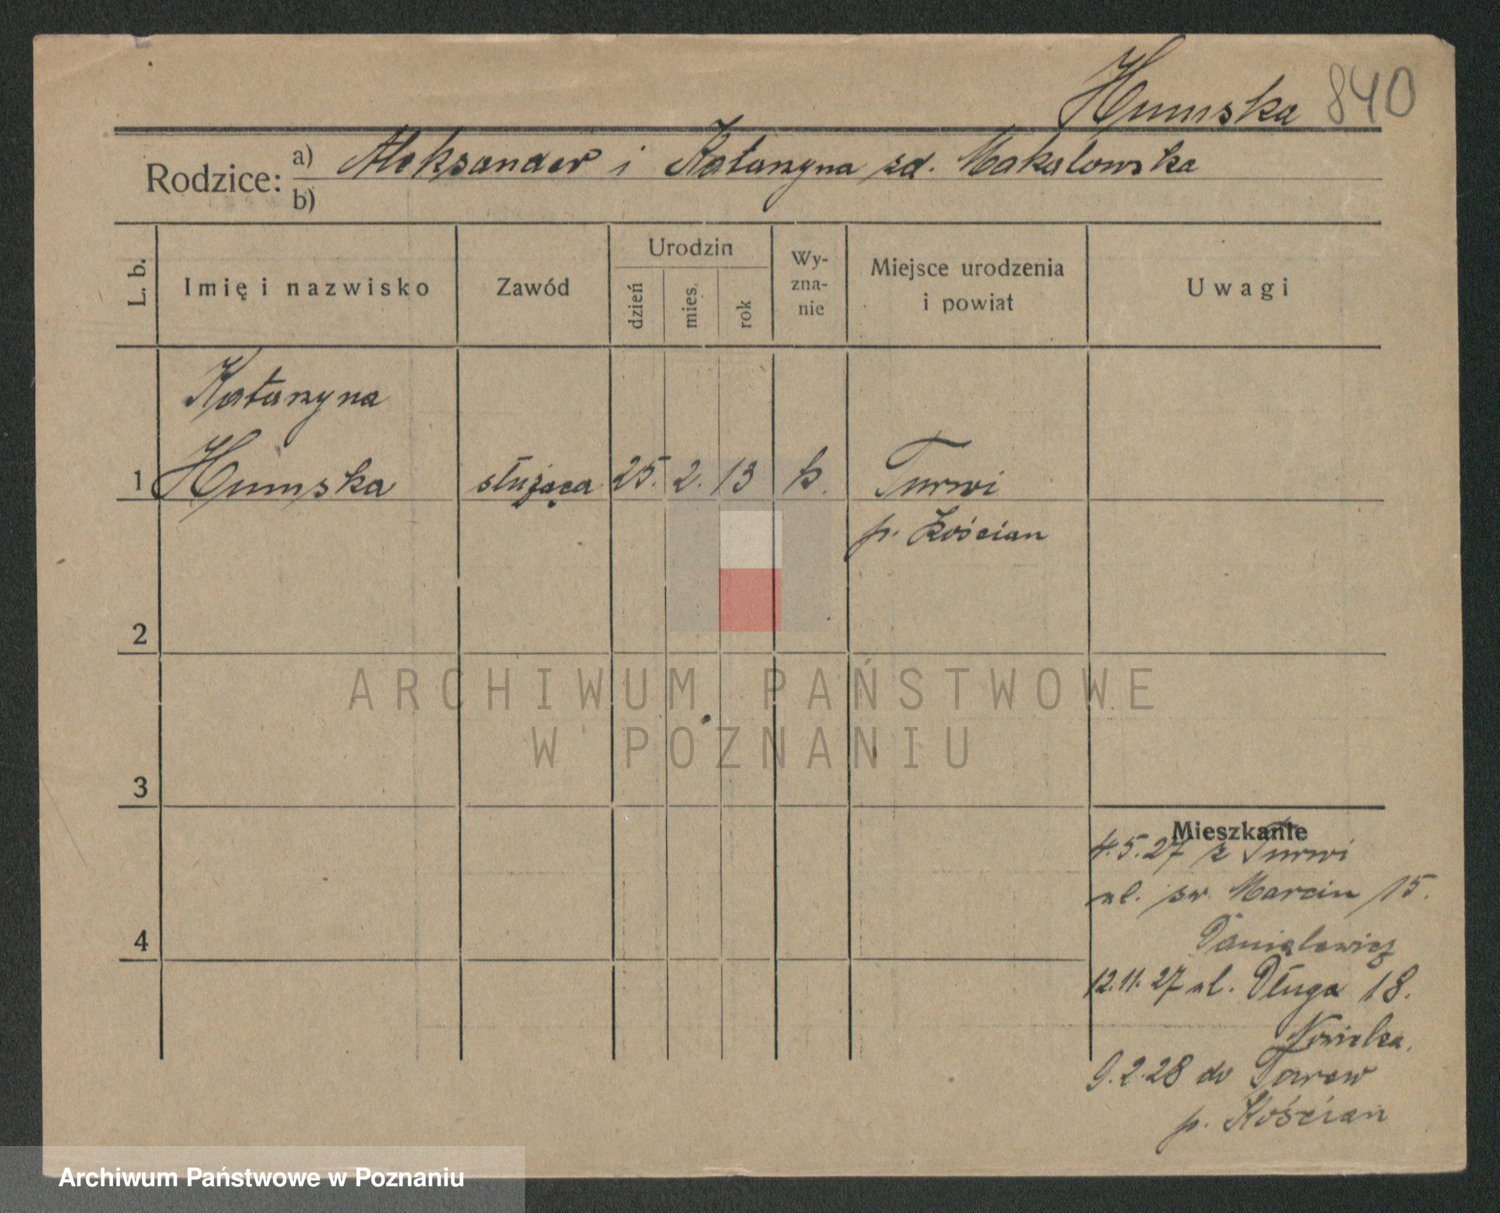 Humska 840
Rodzice: a) Aleksander i Katarzyna zd. Makalowska
b)
L. b.
Imię i nazwisko
Zawód
Urodzin
dzień
mies.
rok
Wy-
zna-
nie
Miejsce urodzenia
i powiat
Uwagi
Katarzyna
1 Humska służąca 25. 2. 13 k. Turwi
p. Kościan
2
3
4
Mieszkanie
4.5.27 z Turwi
ul. św. Marcin 15.
Danielewicz
12.11.27 ul. Długa 18.
9.2.28 do
p. Kościan
ARCHIWUM PAŃSTWOWE
W POZNANIU
Archiwum Państwowe w Poznaniu